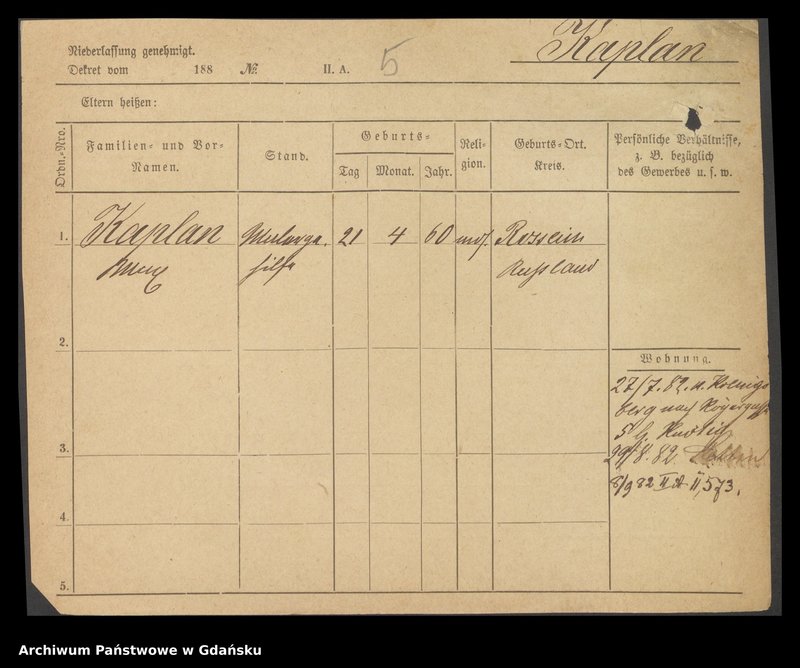 Kaplan
Niederlassung genehmigt.
Dekret vom 188 № II. A. 5
Eltern heißen:
Ordn.-Nro.
Familien- und Vor-
Namen.
Stand.
Geburts-
Tag
Monat.
Jahr.
Reli-
gion.
Geburts-Ort.
Kreis.
Persönliche Verhältnisse,
z. B. bezüglich
des Gewerbes u. s. w.
1. Kaplan 21 4 60 mos. Rossein
Russland
2.
Wohnung.
27/7. 82. v. Koenigs
berg nach
3. 29/8. 82.
8/9 82 II A II, 573.
4.
5.
Archiwum Państwowe w Gdańsku